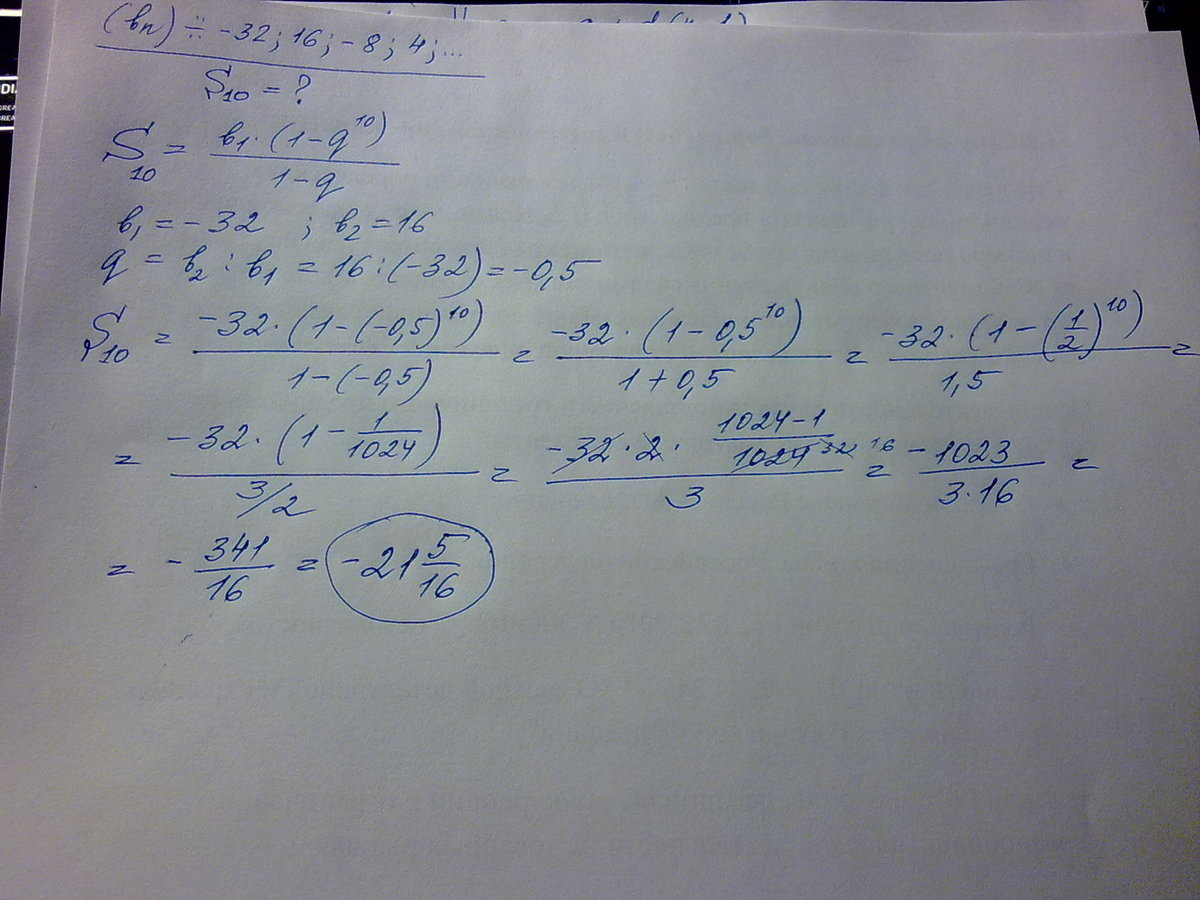 (bn) ∺ -32; 16; -8; 4; ...
S₁₀ = ?
S₁₀ = b₁·(1-q¹⁰) / 1-q
b₁ = -32 ; b₂ = 16
q = b₂ : b₁ = 16 : (-32) = -0,5
S₁₀ = -32·(1-(-0,5)¹⁰) / 1-(-0,5) = -32·(1-0,5¹⁰) / 1+0,5 = -32·(1-(1/2)¹⁰) / 1,5 =
= -32·(1-1/1024) / 3/2 = -32·2· 1024-1/1024 32 16 / 3 = -1023 / 3·16 =
= -341/16 = -21 5/16